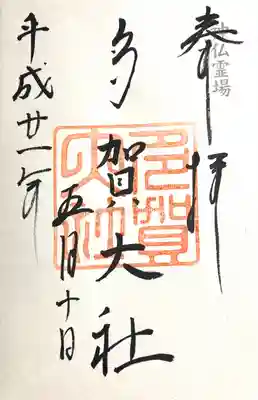 奉拝
神仏霊場
多賀大社
平成廿一年
五月十日
多賀大社